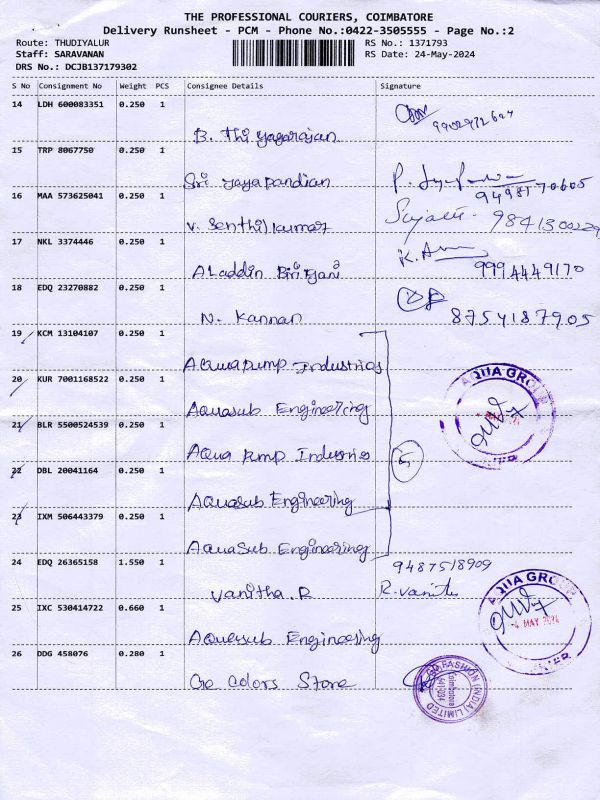 THE PROFESSIONAL COURIERS, COIMBATORE
Delivery Runsheet - PCM - Phone No.:0422-3505555 - Page No.:2
Route: THUDIYALUR RS No.: 1371793
Staff: SARAVANAN RS Date: 24-May-2024
DRS No.: DCJB137179302
S No Consignment No Weight PCS Consignee Details Signature
14 LDH 600083351 0.250 1
B. Thiyagarajan
15 TRP 8067750 0.250 1
Sri Jayapandian
16 MAA 573625041 0.250 1
V. Senthil kumar 9841300229
17 NKL 3374446 0.250 1
Aladdin Biriyani 9994449170
18 EDQ 23270882 0.250 1
N. Kannan 8754187905
19 KCM 13104107 0.250 1
Aquapump Industries
20 KUR 7001168522 0.250 1
Aquasub Engineering
21 BLR 5500524539 0.250 1
Aqua pump Industries
5
22 DBL 20041164 0.250 1
Aquasub Engineering
23 IXM 506443379 0.250 1
AquaSub Engineering
AQUA GROUP
24 EDQ 26365158 1.550 1 9487518909
Vanitha.R R. Vanitha
25 IXC 530414722 0.660 1
Aquasub Engineering
AQUA GROUP
MAY 2024
26 DDG 458076 0.280 1
Go Colors Store
GO FASHION (INDIA) LIMITED
Coimbatore
641034